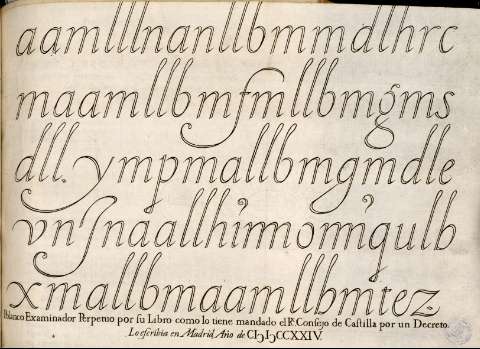 aamlllnanllbmmdlhrc
maamllbmfmllbmgms
dll. ympmallbmgmdle
vnſnaallhirmomrqulb
xmallbmaamllbmtez
Polanco Examinador Perpetuo por ſu Libro como lo tiene mandado el Rˡ Conſejo de Caſtilla por un Decreto.
Lo eſcribia en Madrid Año de CIↃIↃCCXXIV.